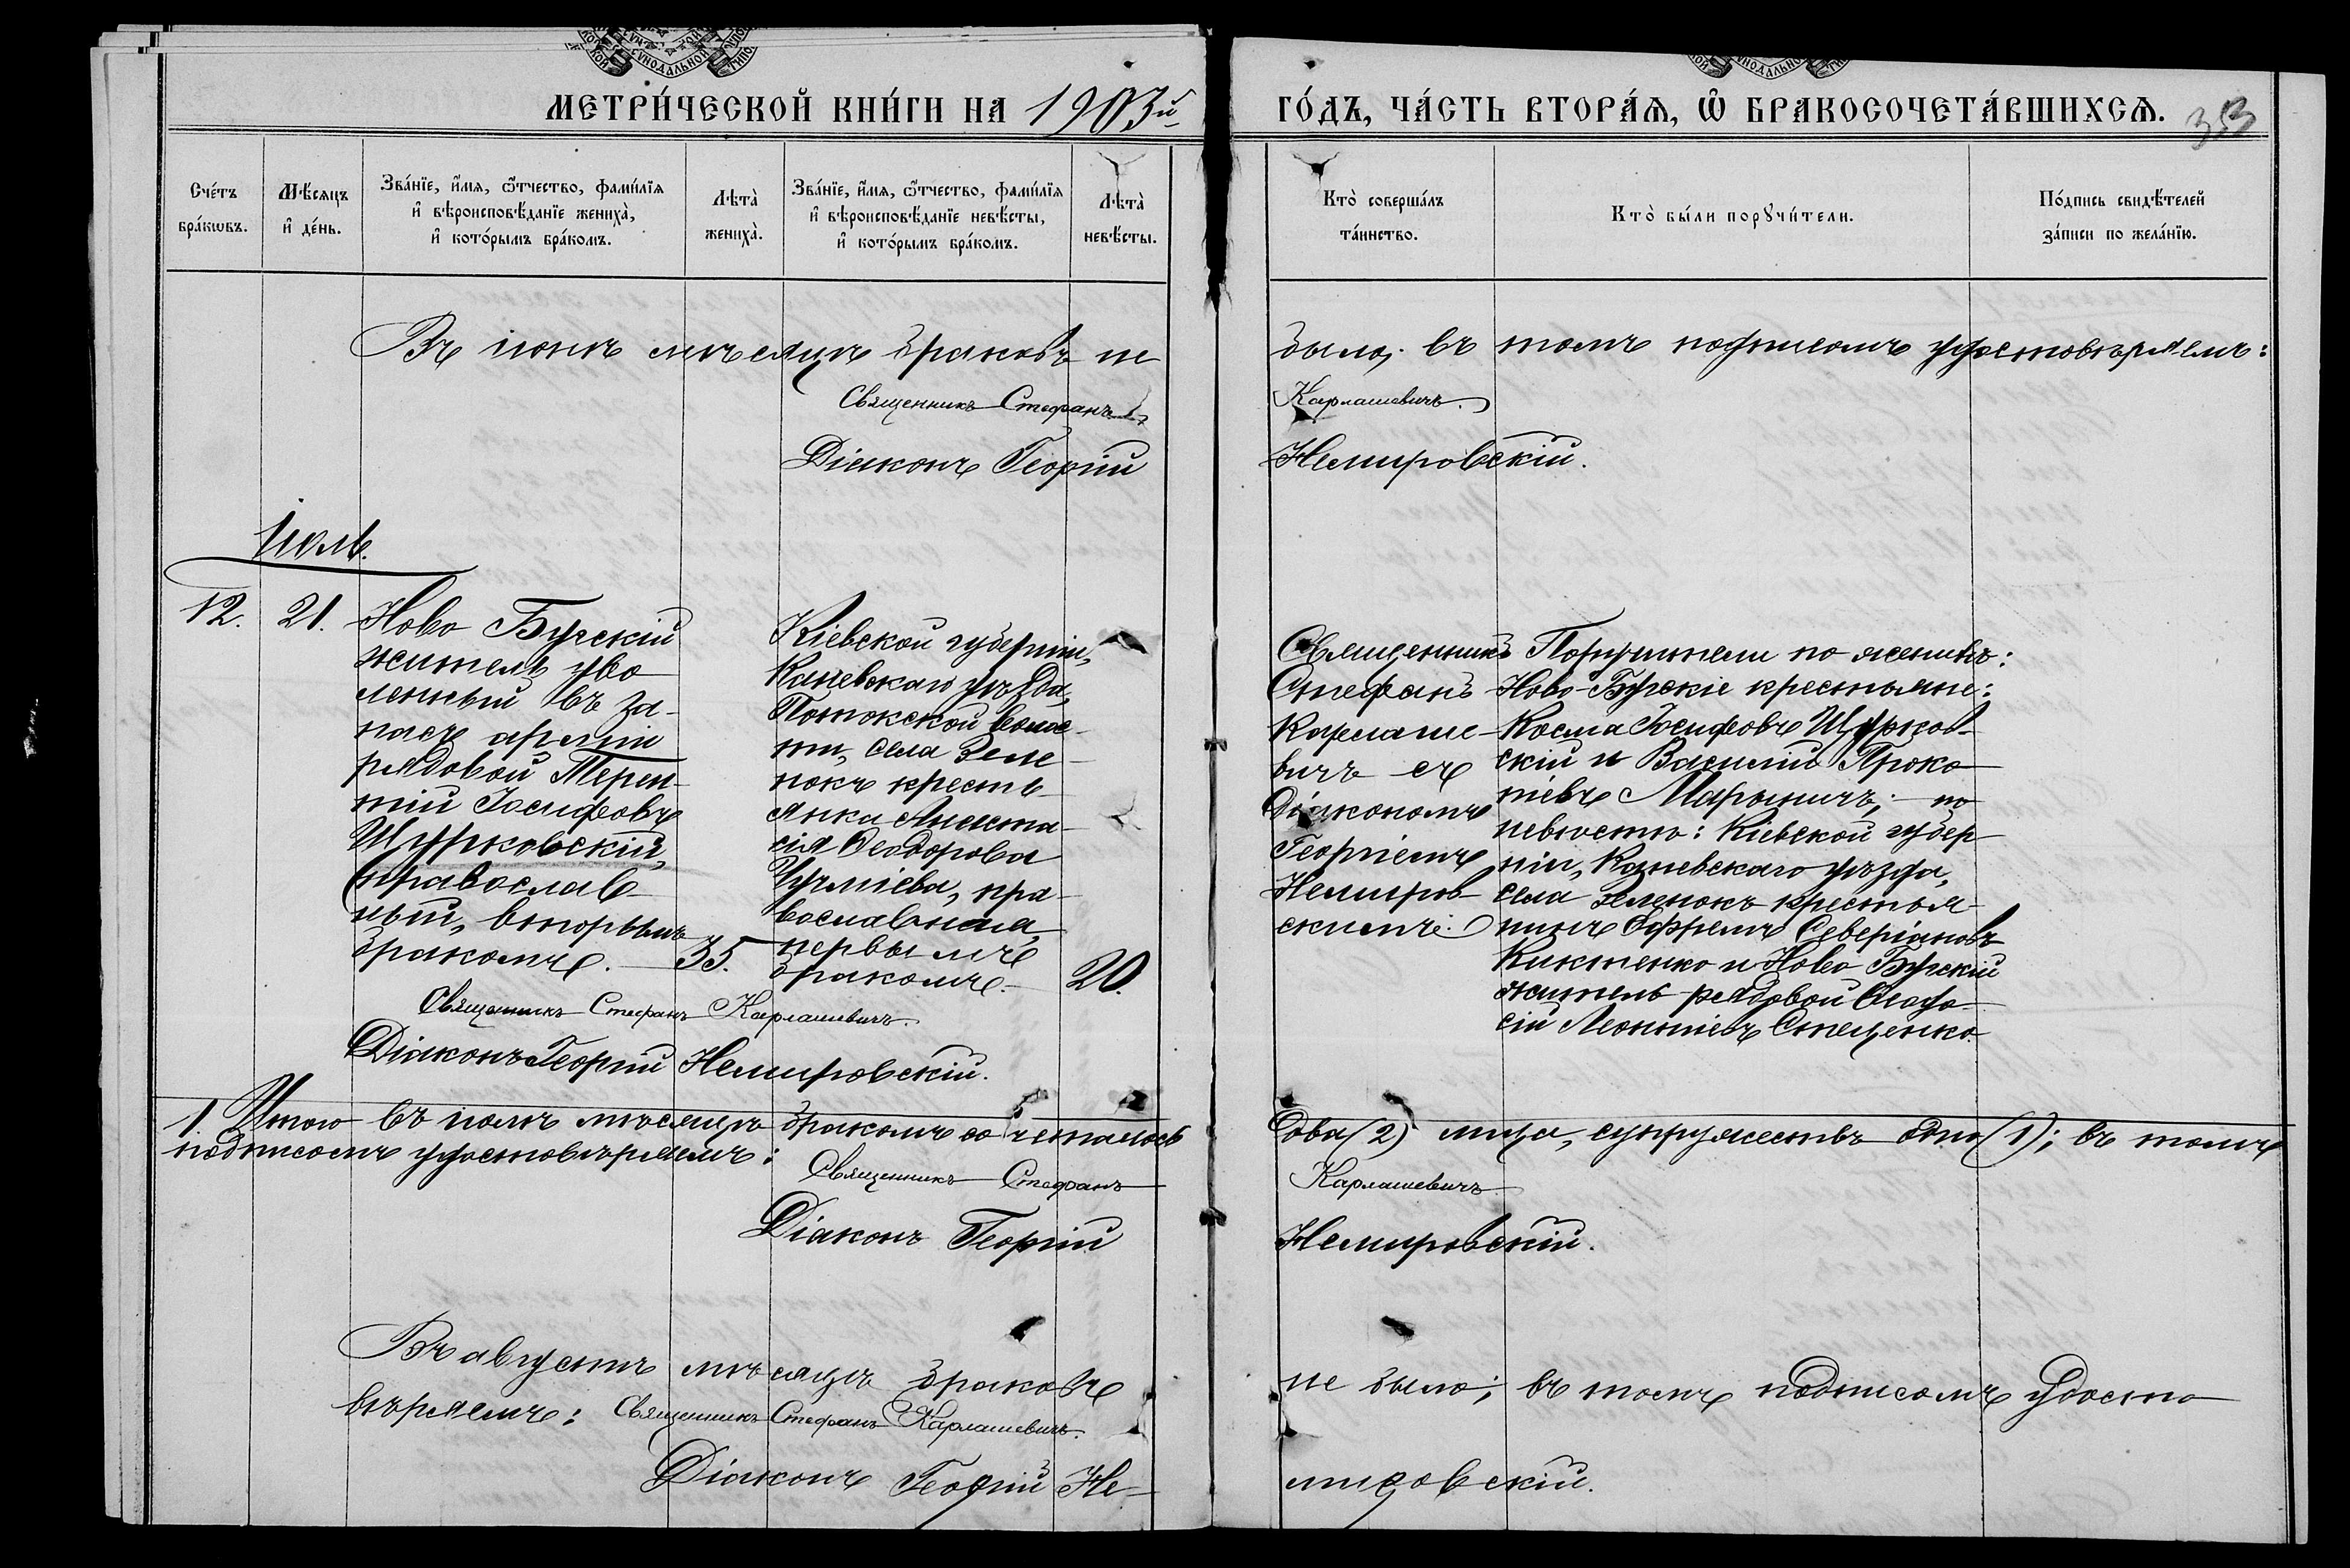 МЕТРИ́ЧЕСКОЙ КНИ́ГИ НА 1903й
ГО́ДЪ, ЧА́СТЬ ВТОРА́Я, Ѿ БРАКОСОЧЕТА́ВШИХСЯ.
353
Сче́тъ бра́кωвъ.
Мѣ́сяцъ и҆ де́нь.
Зва́нїе, и҆́мя, ѻ҆́тчество, фами́лїя
и҆ вѣроисповѣ́данїе жениха̀,
и҆ кото́рымъ бра́комъ.
Лѣта̀ жениха̀.
Зва́нїе, и҆́мя, ѻ҆́тчество, фами́лїя
и҆ вѣроисповѣ́данїе невѣ́сты,
и҆ кото́рымъ бра́комъ.
Лѣта̀ невѣ́сты.
Кто̀ соверша́лъ
та́инство.
Кто̀ бы́ли порꙋчи́тели.
По́дпись свидѣ́телей
за́писи по жела́нїю.
Въ іюнѣ мѣсяцѣ браковъ не было; въ томъ подписомъ удостовѣряемъ:
Священникъ Стефанъ Карлашевичъ.
Діаконъ Георгій Немировскій.
Іюль.
12. 21.
Ново Бугскій
житель уво
ленный въ за-
пасъ арміи
рядовой Терен-
тій Іосифовъ
Щурковскій,
православ-
ный, вторымъ
бракомъ. 35.
Кіевской губерніи,
Каневскаго уѣзда,
Потокской волос-
ти, села Зеле-
нокъ кресть-
янка Анаста-
сія Ѳеодорова
Чучміева, пра-
вославная,
первымъ
бракомъ. 20.
Священникъ
Стефанъ
Карлаше-
вичъ съ
Діакономъ
Георгіемъ
Немиров-
скимъ.
Поручители по женихѣ:
Ново-Бугскіе крестьяне:
Косма Іосифовъ Щурков-
скій и Василій Проко-
піевъ Марыничъ; по
невѣстѣ: Кіевской губер-
ніи, Каневскаго уѣзда,
села Зеленокъ крестья-
нинъ Ефремъ Северіановъ
Киктенко и Ново Бугскій
житель рядовой Ѳеодо-
сій Леонтіевъ Стеценко.
Священникъ Стефанъ Карлашевичъ.
Діаконъ Георгій Немировскій.
1. Итого въ іюлѣ мѣсяцѣ бракомъ сочеталось два (2) лица, супружествъ одно (1); въ томъ
подписомъ удостовѣряемъ:
Священникъ Стефанъ Карлашевичъ
Діаконъ Георгій Немировскій.
Въ августѣ мѣсяцѣ браковъ не было; въ томъ подписомъ удосто-
вѣряемъ: Священникъ Стефанъ Карлашевичъ.
Діаконъ Георгій Не-
мировскій.